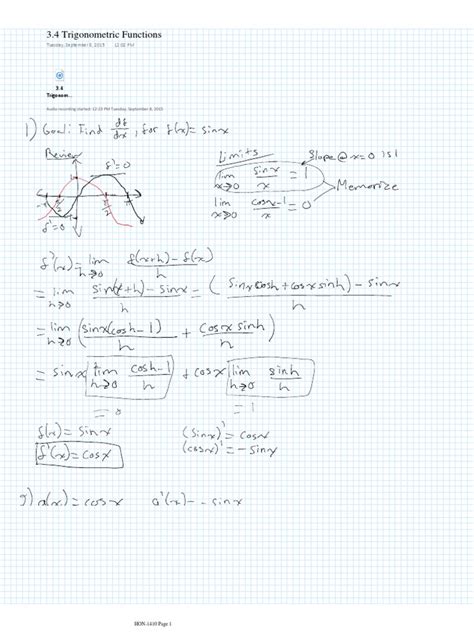 3.4 Trigonometric Functions
Tuesday, September 8, 2015 12:02 PM
3.4
Trigonom...
Audio recording started: 12:22 PM Tuesday, September 8, 2015
1) Goal: Find df/dx, for f(x) = sinx
Review
f'=0
f'=0
Limits
Slope @ x=0 is 1
lim x→0 sinx/x = 1
Memorize
lim x→0 cosx-1/x = 0
f'(x) = lim h→0 f(x+h) - f(x) / h
= lim h→0 sin(x+h) - sinx / h = (sinx cosh + cosx sinh) - sinx / h
= lim h→0 (sinx(cosh-1) / h + cosx sinh / h)
= sinx lim h→0 cosh-1 / h + cosx lim h→0 sinh / h
= 0 = 1
f(x) = sinx (sinx)' = cosx
f'(x) = cosx (cosx)' = -sinx
(x) = cosx '(x) - - sinx
HON-1410 Page 1